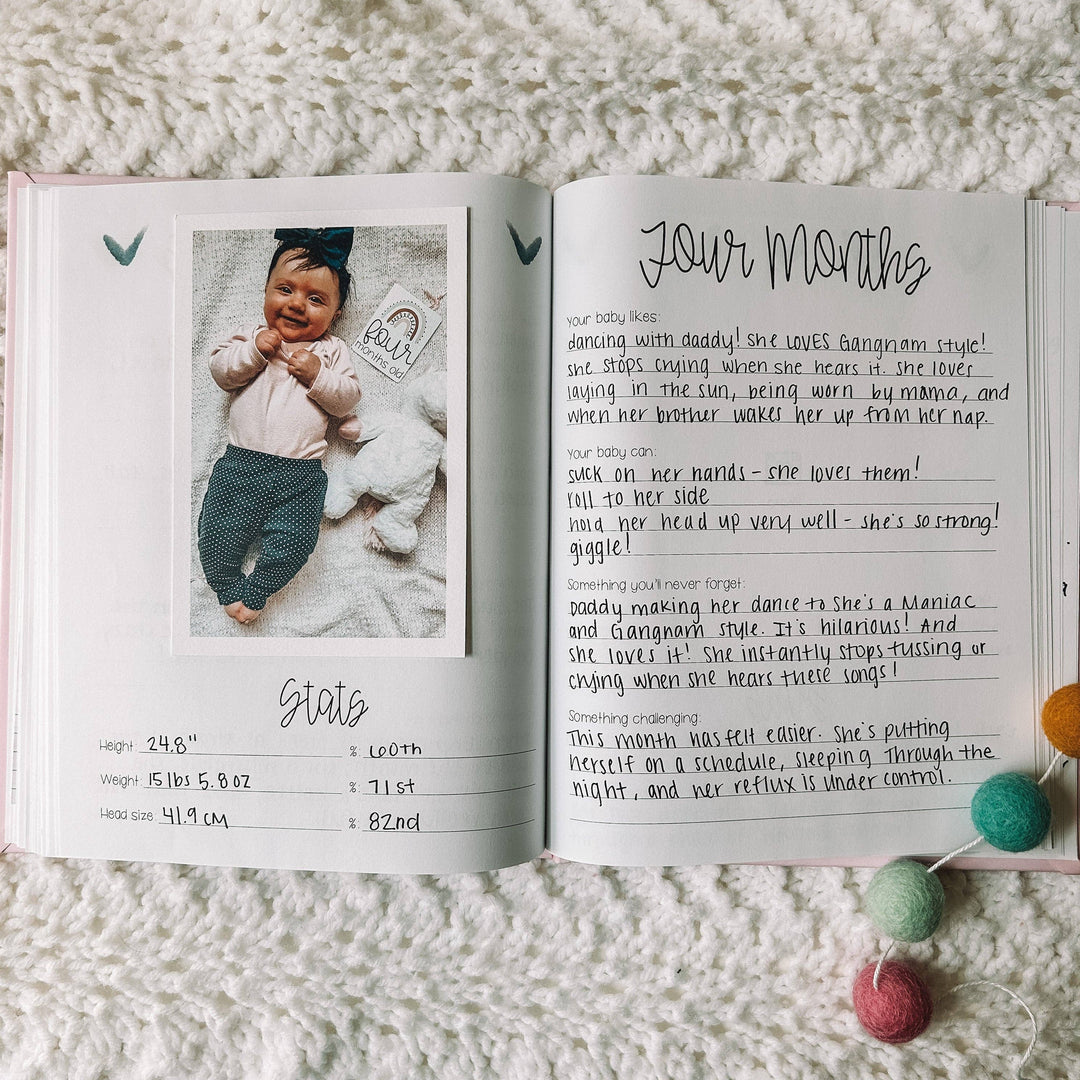 four
months old
Stats
Height: 24.8" %: 60th
Weight: 15 lbs 5.8 oz %: 71st
Head size: 41.9 cm %: 82nd
Four Months
Your baby likes:
dancing with daddy! She LOVES Gangnam Style!
She stops crying when she hears it. She loves
laying in the sun, being worn by mama, and
when her brother wakes her up from her nap.
Your baby can:
suck on her hands - she loves them!
roll to her side
hold her head up very well - she's so strong!
giggle!
Something you'll never forget:
Daddy making her dance to She's a Maniac
and Gangnam style. It's hilarious! And
she loves it! She instantly stops fussing or
crying when she hears these songs!
Something challenging:
This month has felt easier. She's putting
herself on a schedule, sleeping through the
night, and her reflux is under control.